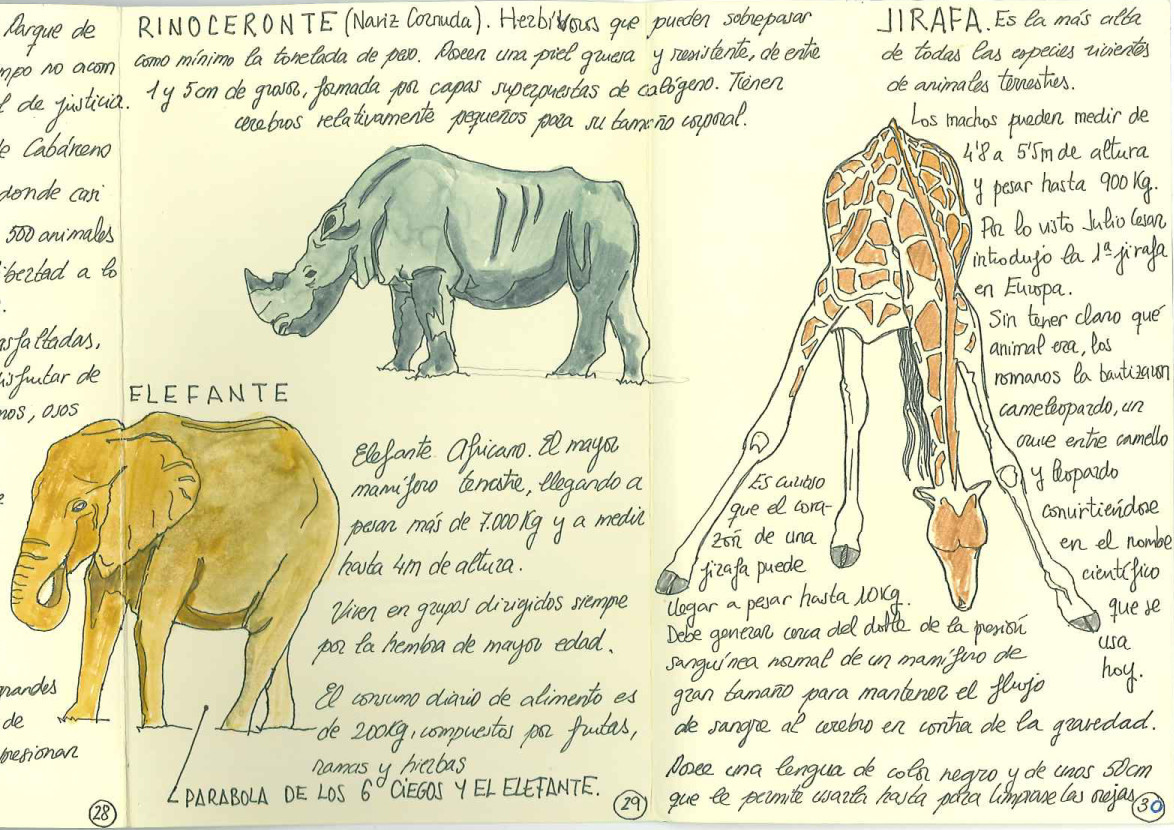 Parque de
mpo no acom
l de justicia.
de Cabárceno
donde casi
500 animales
ibertad a lo
asfaltadas,
disfrutar de
nos, osos
grandes
de
presionar
28
RINOCERONTE (Nariz Cornuda). Herbívoros que pueden sobrepasar
como mínimo la tonelada de peso. Poseen una piel gruesa y resistente, de entre
1 y 5cm de grosor, formada por capas superpuestas de colágeno. Tienen
cerebros relativamente pequeños para su tamaño corporal.
ELEFANTE
Elefante Africano. El mayor
mamífero terrestre, llegando a
pesar más de 7.000Kg y a medir
hasta 4m de altura.
Viven en grupos dirigidos siempre
por la hembra de mayor edad.
El consumo diario de alimento es
de 200Kg, compuestos por frutas,
ramas y hierbas
PARABOLA DE LOS 6 CIEGOS Y EL ELEFANTE.
29
JIRAFA. Es la más alta
de todas las especies vivientes
de animales terrestres.
Los machos pueden medir de
4'8 a 5'5m de altura
y pesar hasta 900 Kg.
Por lo visto Julio Cesar
introdujo la 1ª jirafa
en Europa.
Sin tener claro qué
animal era, los
romanos la bautizaron
cameleopardo, un
cruce entre camello
y leopardo
convirtiéndose
en el nombre
científico
que se
usa
hoy.
Es curioso
que el cora-
zón de una
jirafa puede
llegar a pesar hasta 10Kg.
Debe generar cerca del doble de la presión
sanguínea normal de un mamífero de
gran tamaño para mantener el flujo
de sangre al cerebro en contra de la gravedad.
Posee una lengua de color negro y de unos 50cm
que le permite usarla hasta para limpiarse las orejas.
30